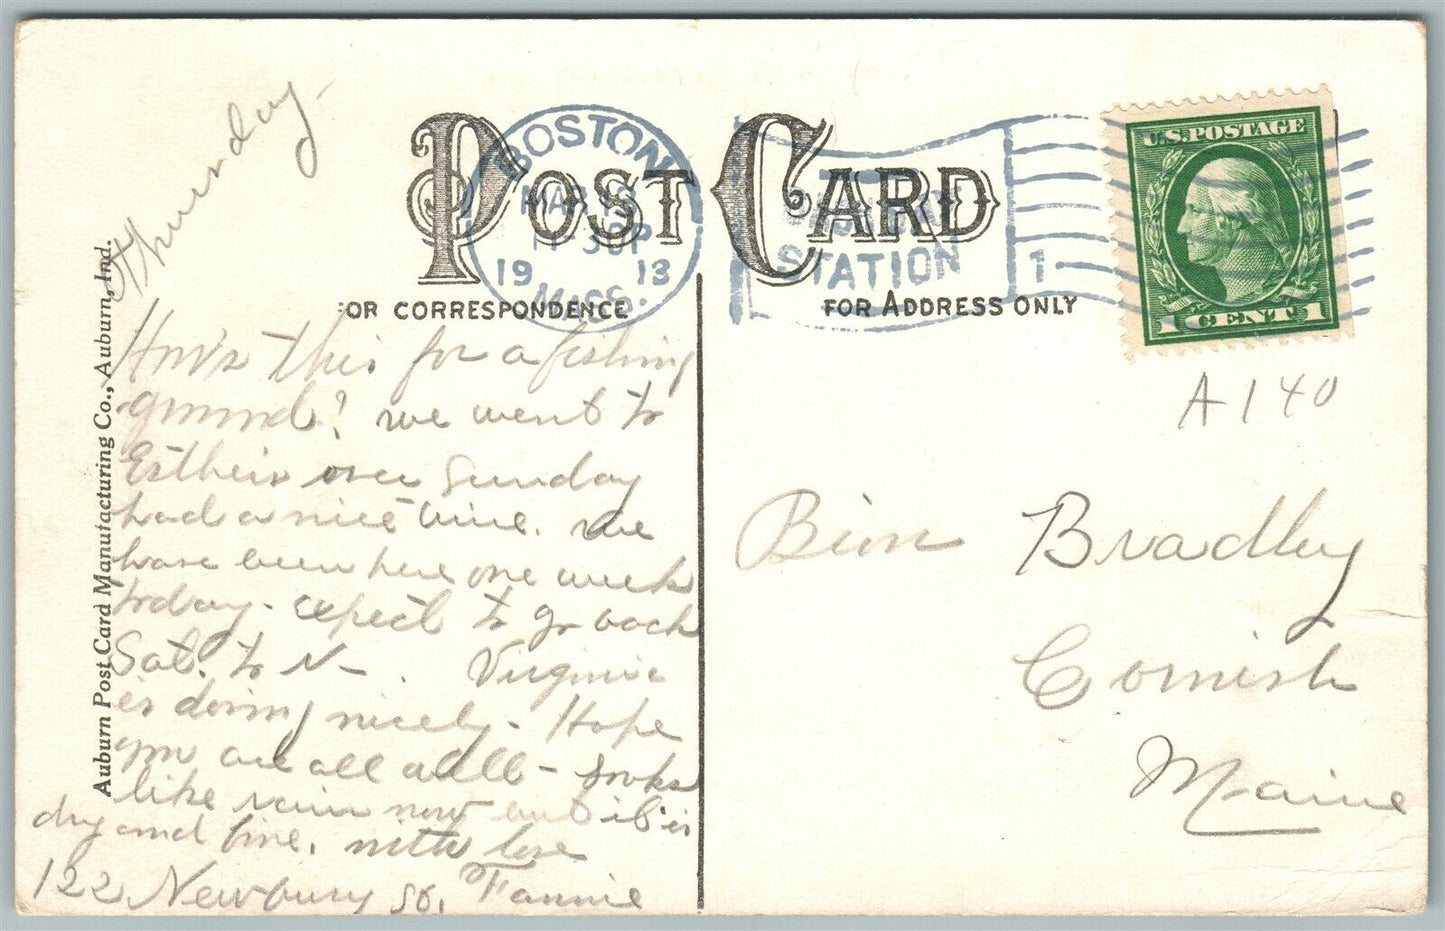 Thursday-
POST CARD
BOSTON
MASS.
19 13
STATION
1
U.S.POSTAGE
1 CENT 1
FOR CORRESPONDENCE
FOR ADDRESS ONLY
Auburn Post Card Manufacturing Co., Auburn, Ind.
How's this for a fishing
ground? We went to
Esther's over Sunday
had a nice time. We
have been here one week
today. expect to go back
Sat. to N-. Virginia
is doing nicely- Hope
you are all well - looks
like rain now but it is
dry and fine. with love
122 Newbury St. Fannie
A140
Bion Bradley
Cornish
Maine